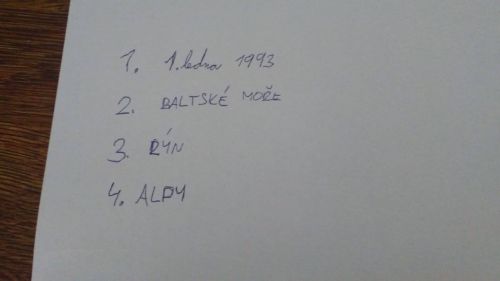 1. 1. ledna 1993
2. BALTSKÉ MOŘE
3. RÝN
4. ALPY